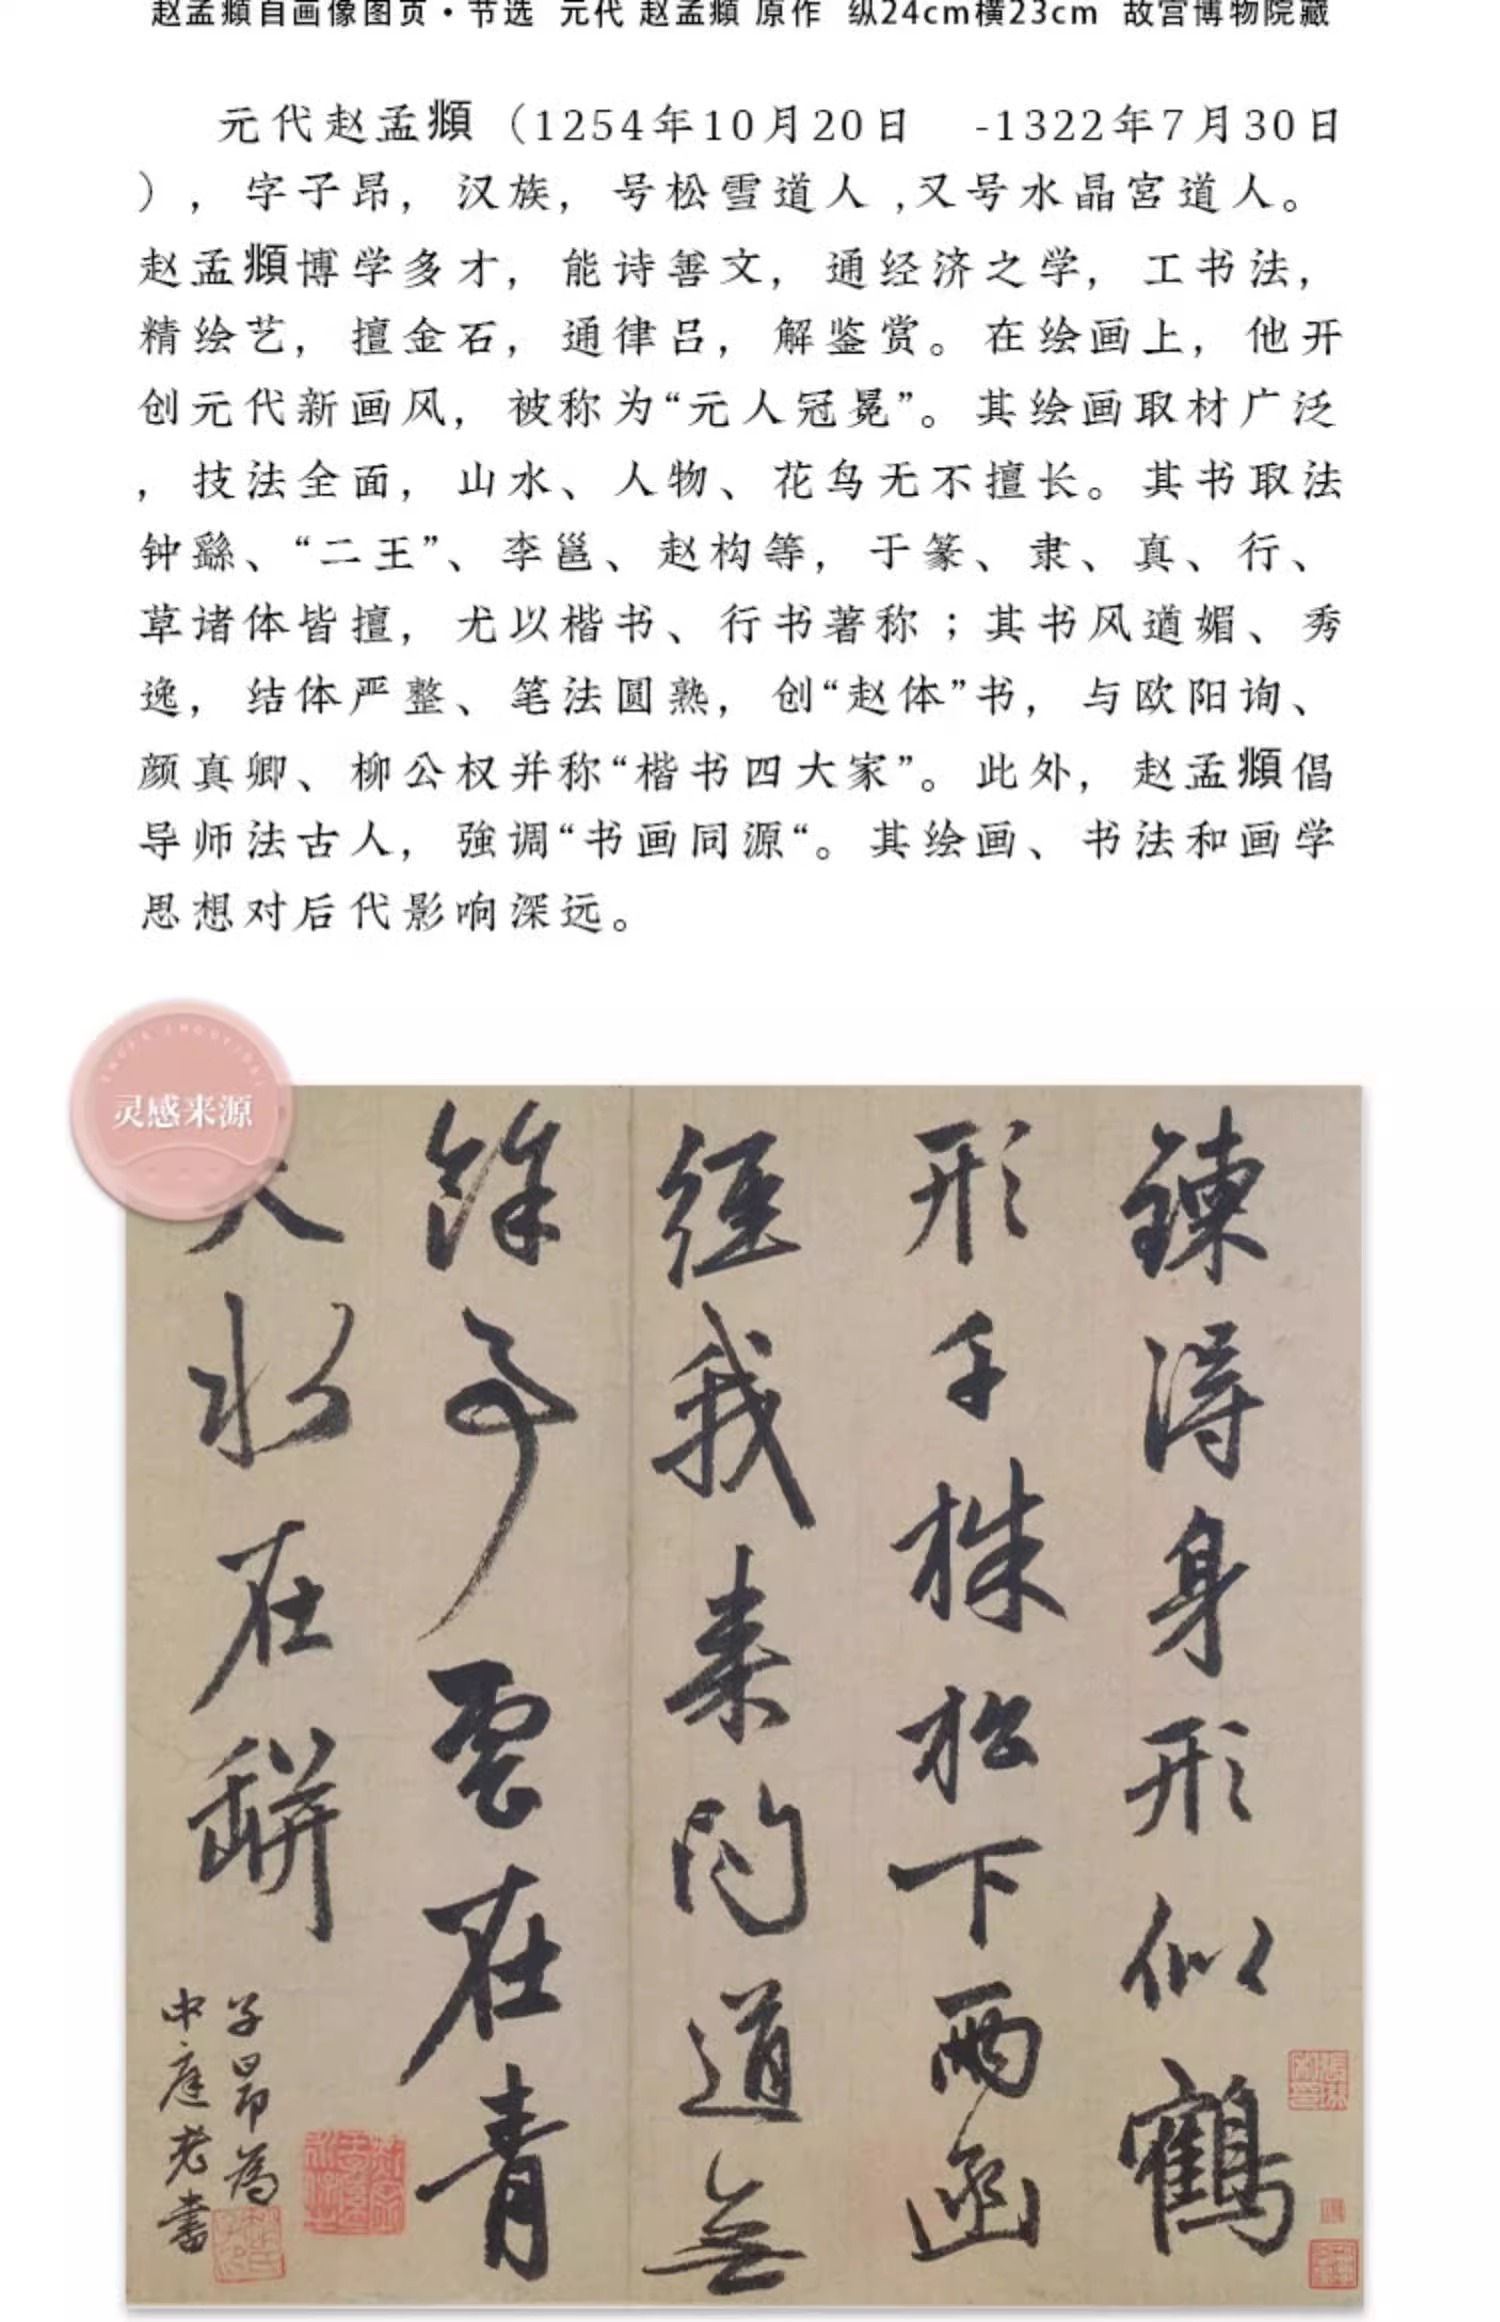 赵孟頫自画像图页·节选 元代 赵孟頫 原作 纵24cm横23cm 故宫博物院藏
元代赵孟頫（1254年10月20日 -1322年7月30日
），字子昂，汉族，号松雪道人 ,又号水晶宫道人。
赵孟頫博学多才，能诗善文，通经济之学，工书法，
精绘艺，擅金石，通律吕，解鉴赏。在绘画上，他开
创元代新画风，被称为“元人冠冕”。其绘画取材广泛
，技法全面，山水、人物、花鸟无不擅长。其书取法
钟繇、“二王”、李邕、赵构等，于篆、隶、真、行、
草诸体皆擅，尤以楷书、行书著称；其书风遒媚、秀
逸，结体严整、笔法圆熟，创“赵体”书，与欧阳询、
颜真卿、柳公权并称“楷书四大家”。此外，赵孟頫倡
导师法古人，強调“书画同源“。其绘画、书法和画学
思想对后代影响深远。
灵感来源
鍊得身形似鶴
形千株松下兩函
經我来问道無
餘事雲在青
天水在缾
子昂為
中庭老書